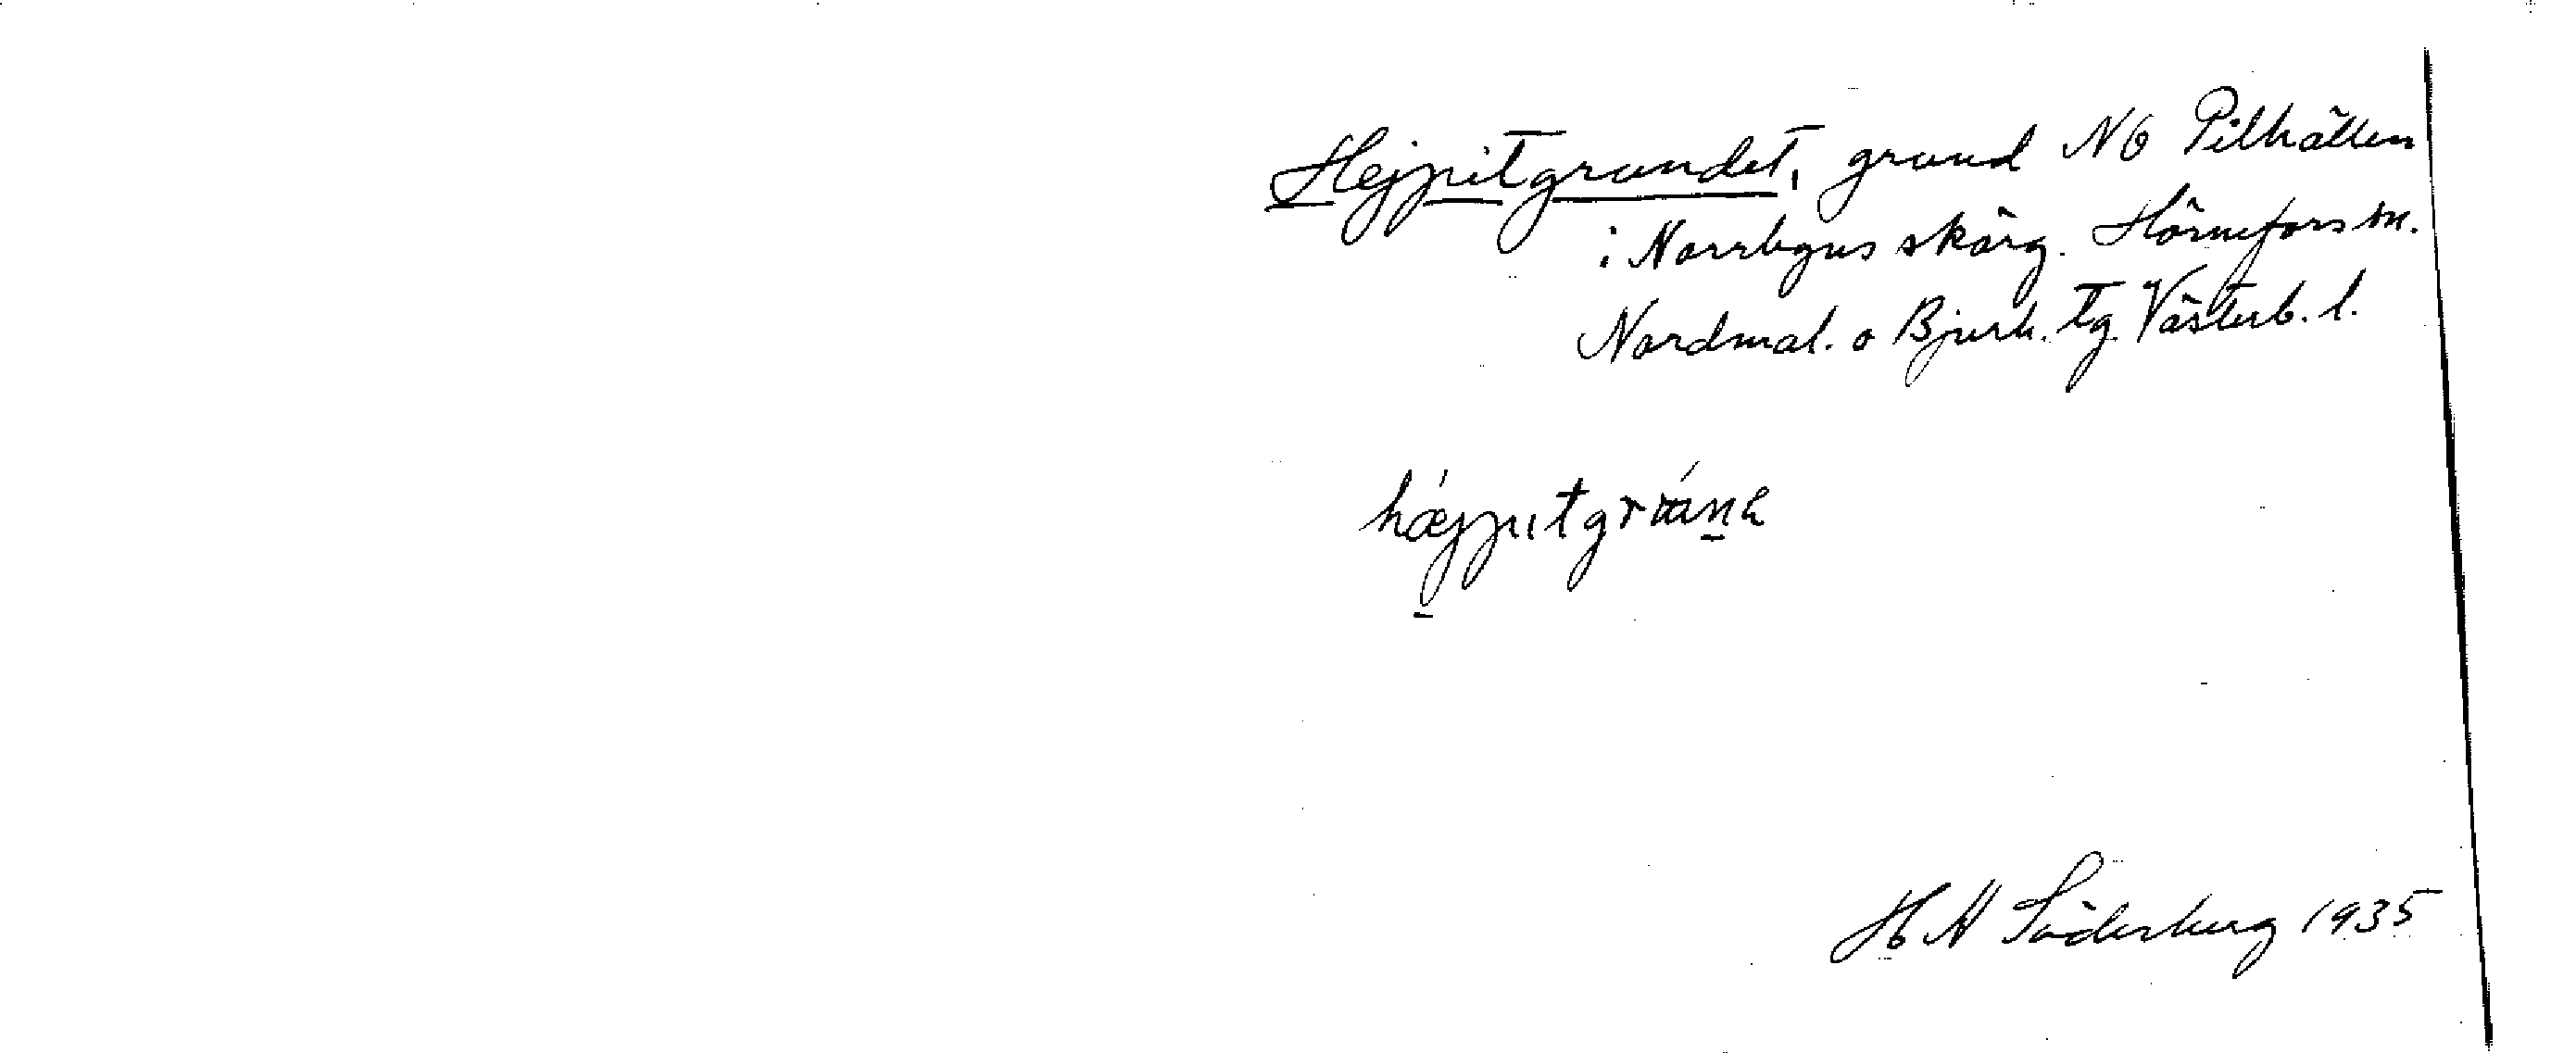 Hejpitgrundet, grund NO Pilhällen
i Norrbyns skärg. Hörnefors sn.
Nordmal. o Bjurh. tg. Västerb. l.
hæjpıtgrɯ́nɐ
H A Söderberg 1935